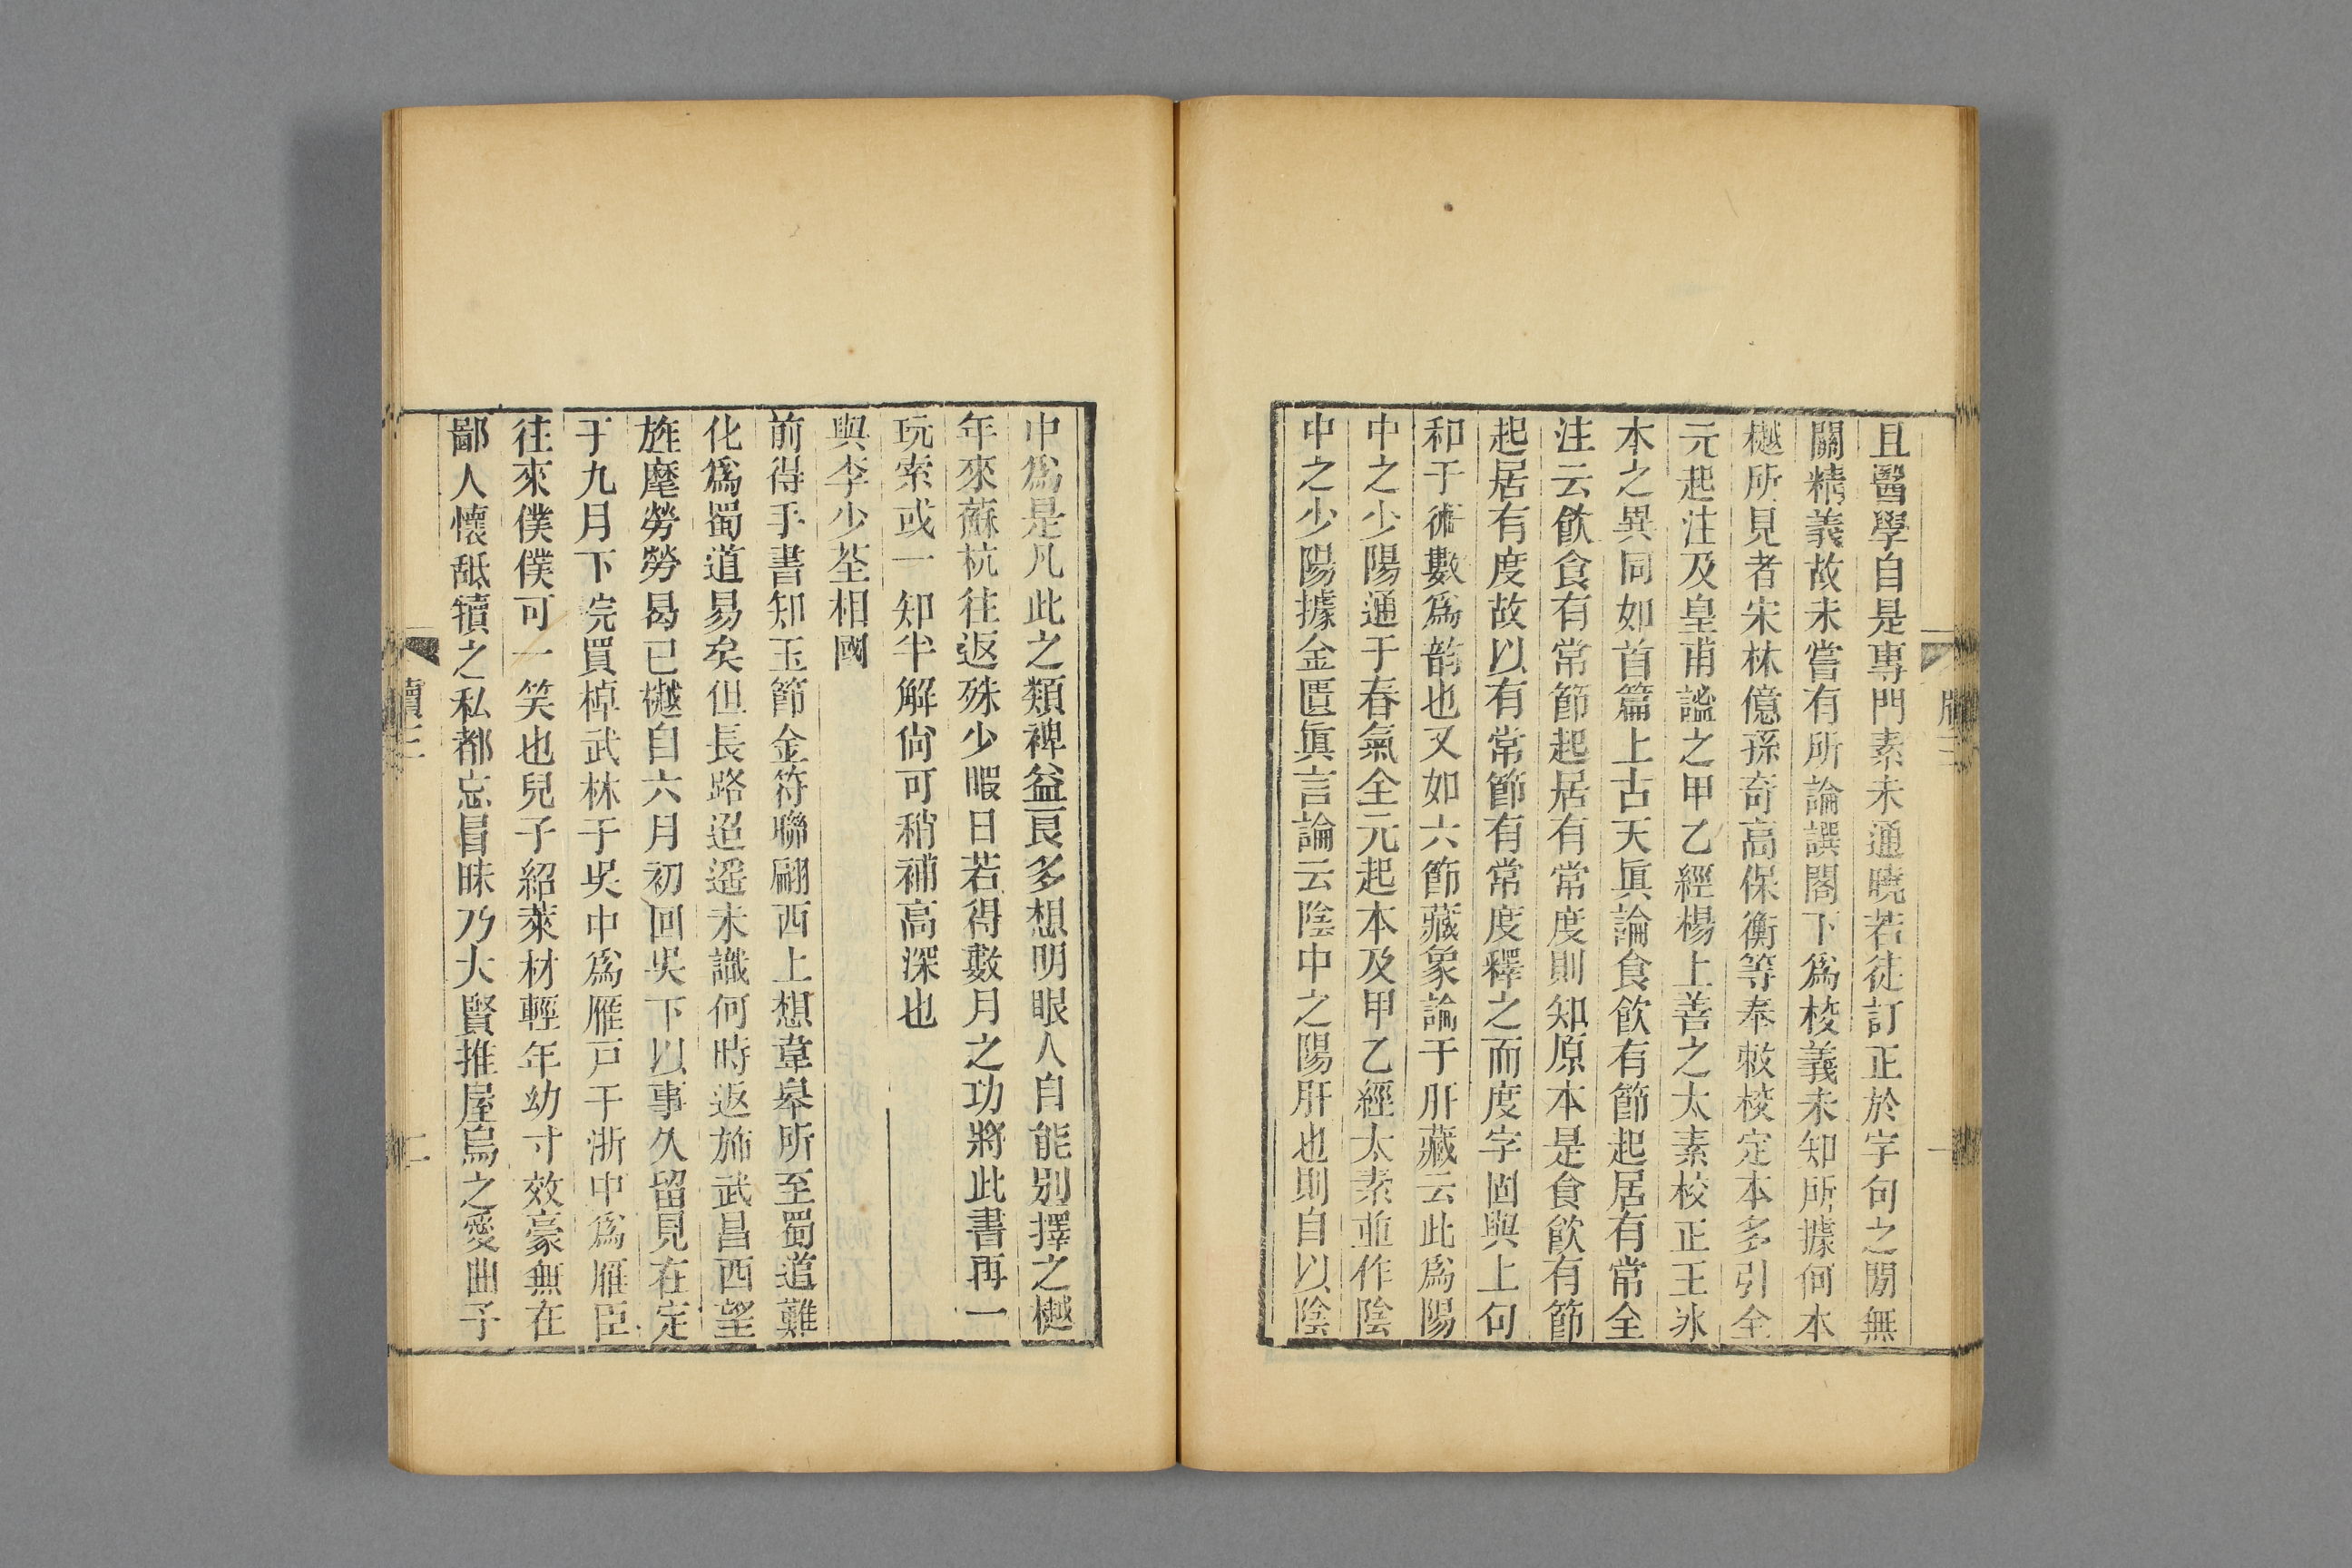 且醫學自是專門素未通曉若徒訂正於字句之閒無
關精義故未嘗有所論譔閣下爲校義未知所據何本
樾所見者宋林億孫奇高保衡等奉敕校定本多引全
元起注及皇甫謐之甲乙經楊上善之太素校正王氷
本之異同如首篇上古天眞論食飮有節起居有常全
注云飮食有常節起居有常度則知原本是食飮有節
起居有度故以有常節有常度釋之而度字固與上句
和于術數爲韵也又如六節藏象論于肝藏云此爲陽
中之少陽通于春氣全元起本及甲乙經太素並作陰
中之少陽據金匱眞言論云陰中之陽肝也則自以陰
一
中爲是凡此之類裨益良多想明眼人自能別擇之樾
年來蘇杭往返殊少暇日若得數月之功將此書再一
玩索或一知半解尙可稍補高深也
與李少荃相國
前得手書知玉節金符聯翩西上想韋皋所至蜀道難
化爲蜀道易矣但長路迢遥未識何時返斾武昌西望
旌麾勞勞曷已樾自六月初回吳下以事久留見在定
于九月下浣買棹武林于吳中爲雁戸于浙中爲雁臣
往來僕僕可一笑也兒子紹萊材輕年幼寸效豪無在
鄙人懷舐犢之私都忘昌昧乃大賢推屋烏之愛曲予
牘三
二